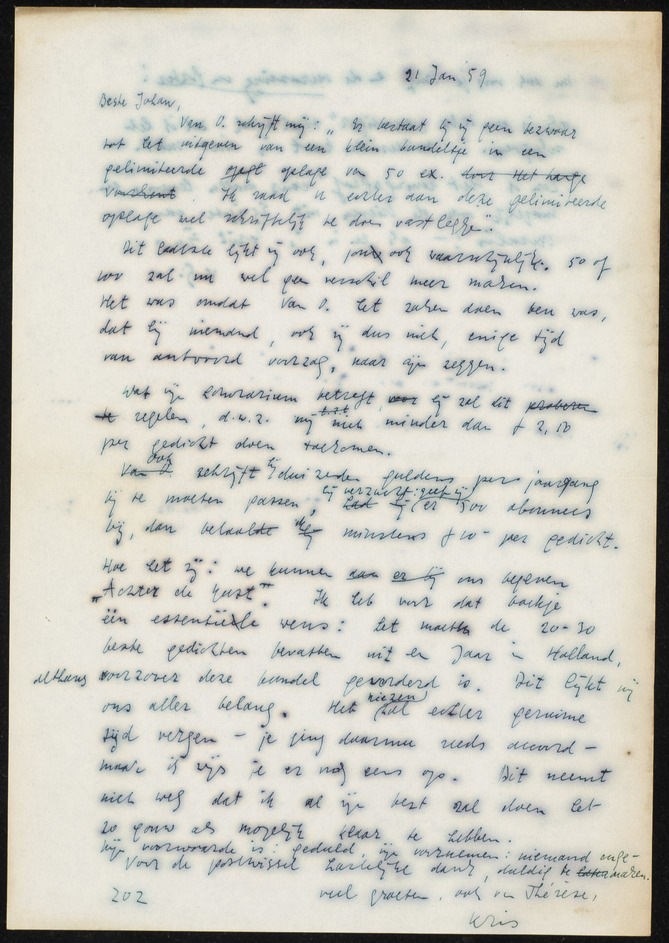 21 Jan '59
Beste Johan,
Van O. schrijft mij: „Er bestaat bij mij geen bezwaar
tot het uitgeven van een klein bundeltje in een
gelimiteerde oplage van 50 ex. door het
Ik raad u echter aan deze gelimiteerde
oplage wel schriftelijk te doen vastleggen".
Dit laatste lijkt mij ook, jou ook waarschijnlijk. 50 of
100 zal nu wel geen verschil meer maken.
Het was omdat Van O. het zaken doen ben was,
dat hij niemand, ook mij dus niet, enige tijd
van antwoord voorzag, naar zijn zeggen.
Wat mijn honorarium betreft, hij zal dit proberen
te regelen, d.w.z. mij niet minder dan f 2,10
per gedicht doen toekomen.
Van O. ook schrijft bij duizenden guldens per jaargang
bij te moeten passen, hij verzucht: geef mij er 1500 abonnees
bij, dan betaalde ik minstens f 10 – per gedicht.
Hoe het zij: we kunnen ons begeven
„Achter de kust". Ik heb voor dat boekje
één essentiële wens: het moeten de 20-30
beste gedichten bevatten uit en Jaar in Holland,
althans voorzover deze bundel gevorderd is. Dit lijkt mij
ons aller belang. Het kiezen zal echter geruime
tijd vergen – je ging daarmee reeds accoord –
maar ik wijs je er nog eens op. Dit neemt
niet weg dat ik al mijn best zal doen het
zo gauw als mogelijk klaar te hebben.
Mijn voorwaarde is: geduld, mijn voornemen: niemand onge-
duldig te maken.
Voor de postwissel hartelijke dank,
veel groeten, ook van Thérèse,
Kris
202